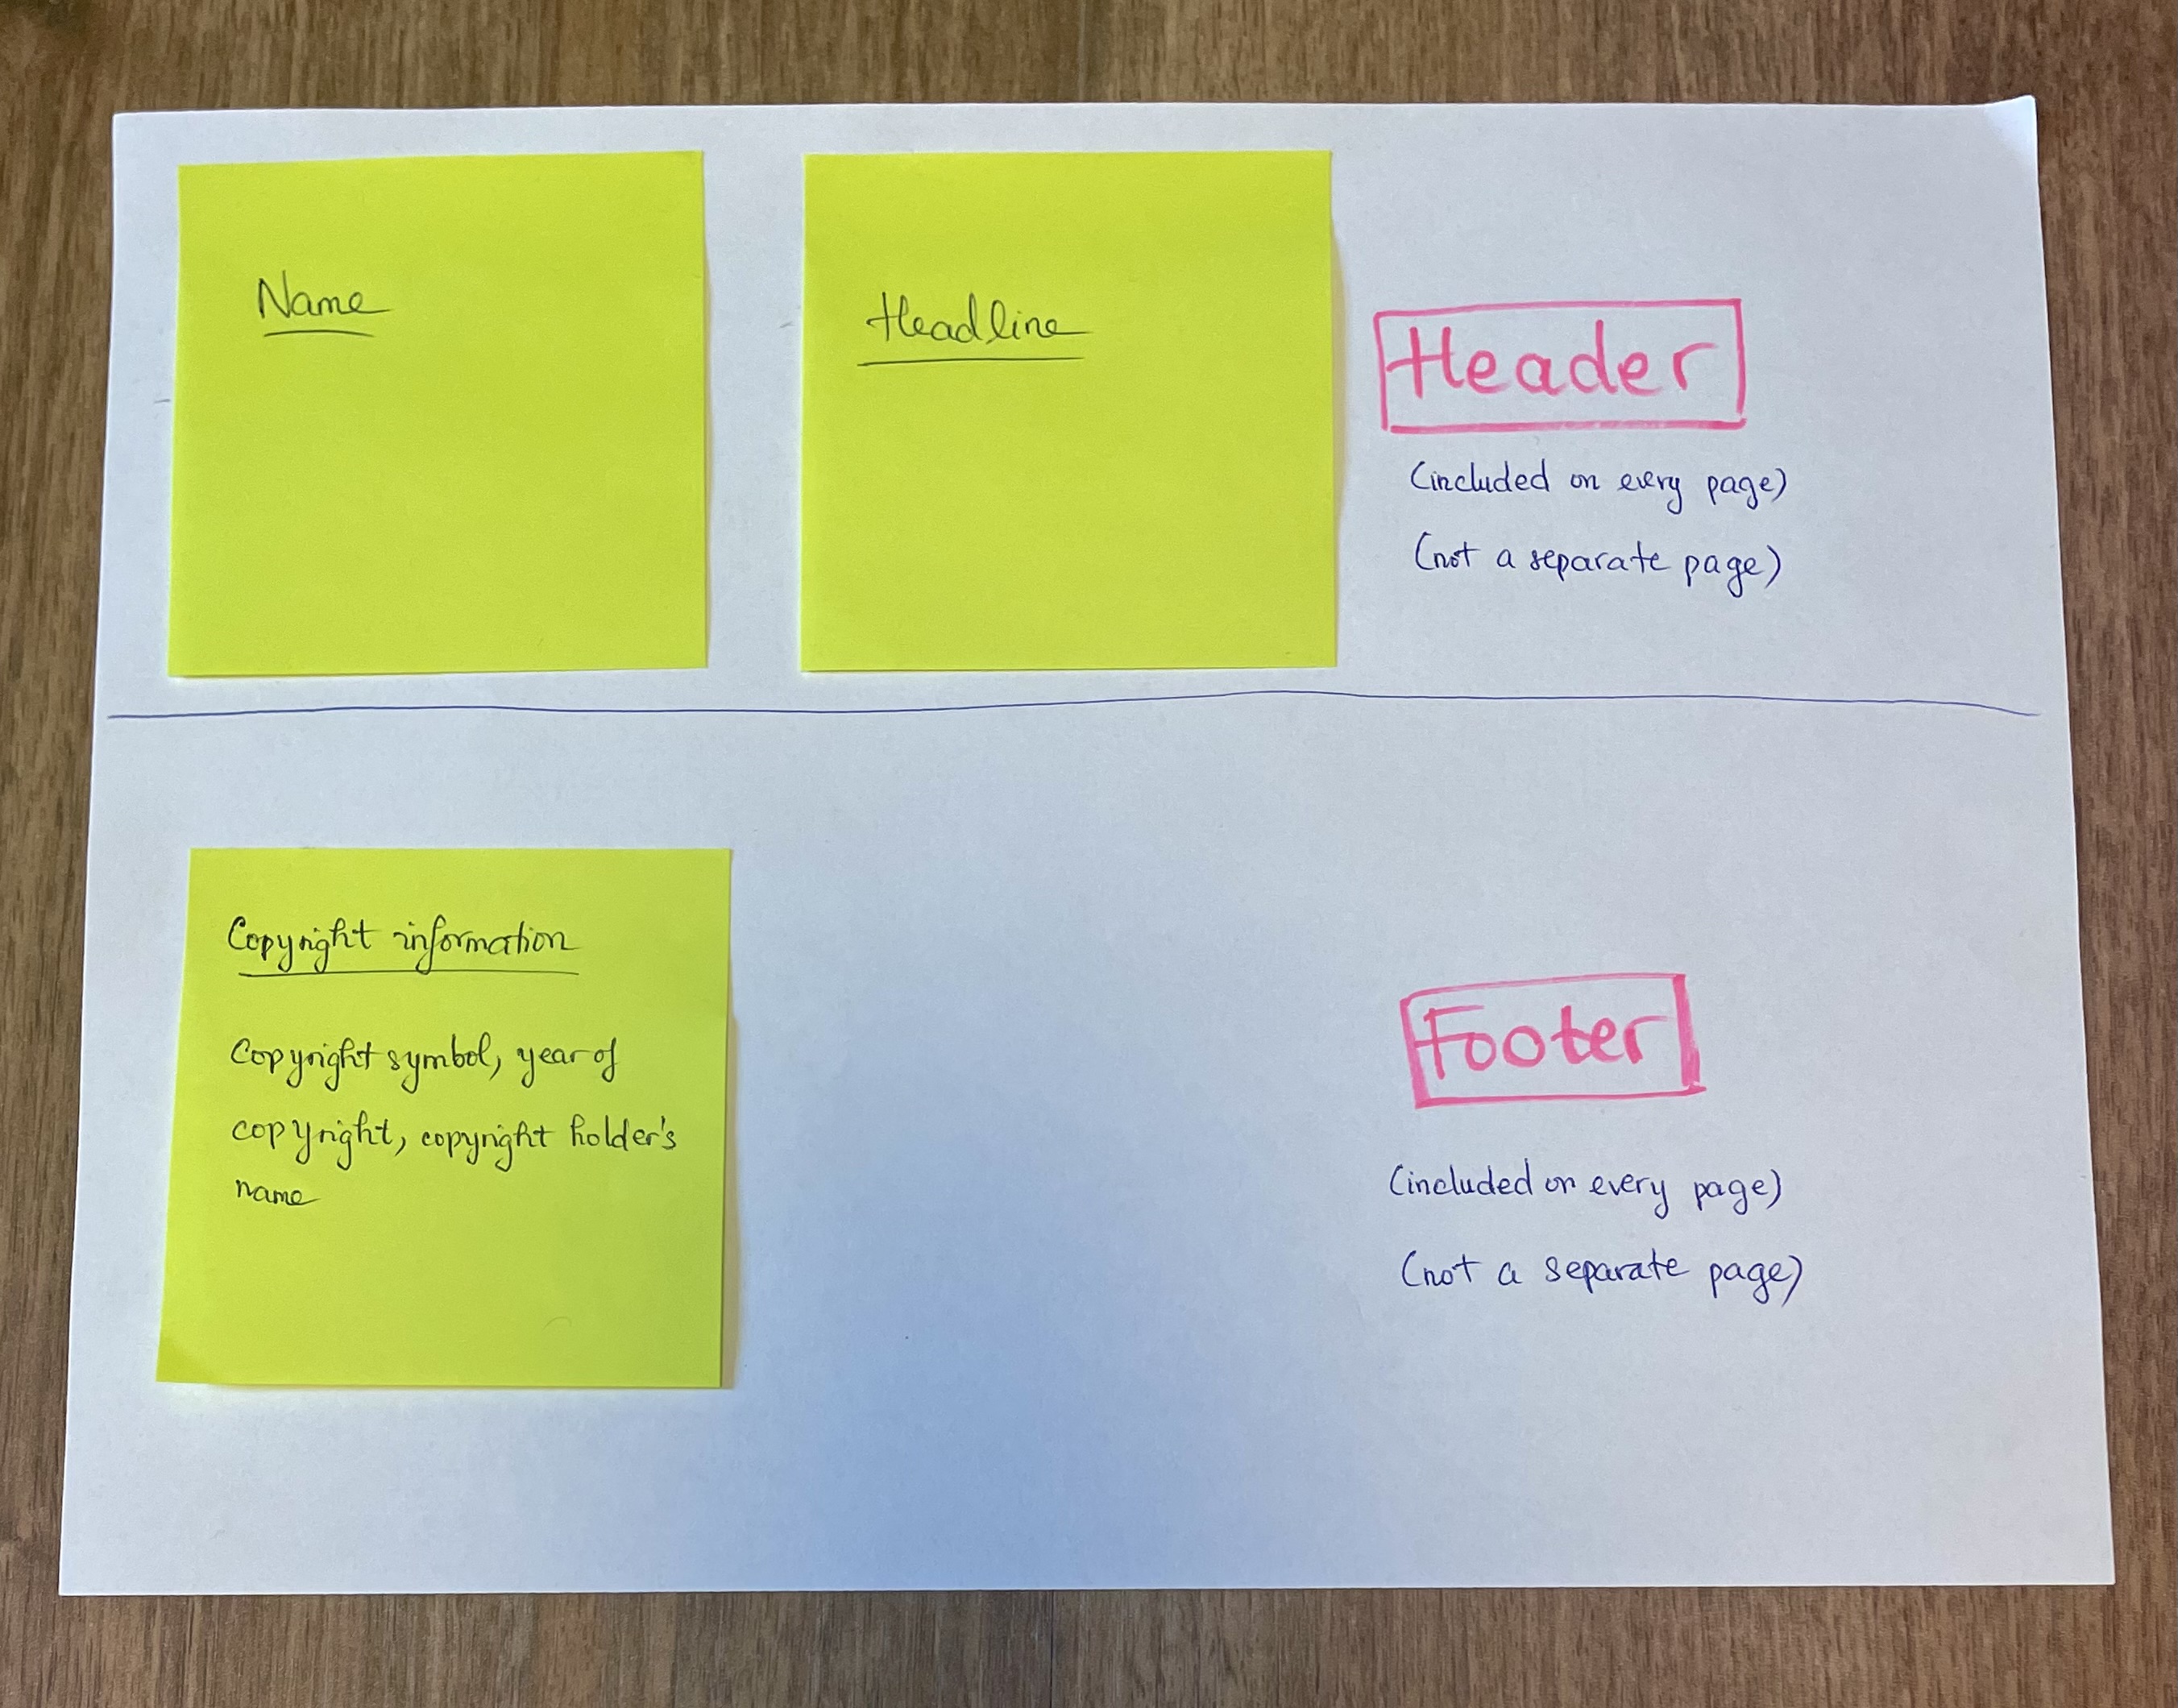 Name
Headline
Header
(included on every page)
(not a separate page)
Copyright information
Copyright symbol, year of
copyright, copyright holder's
name
Footer
(included on every page)
(not a separate page)